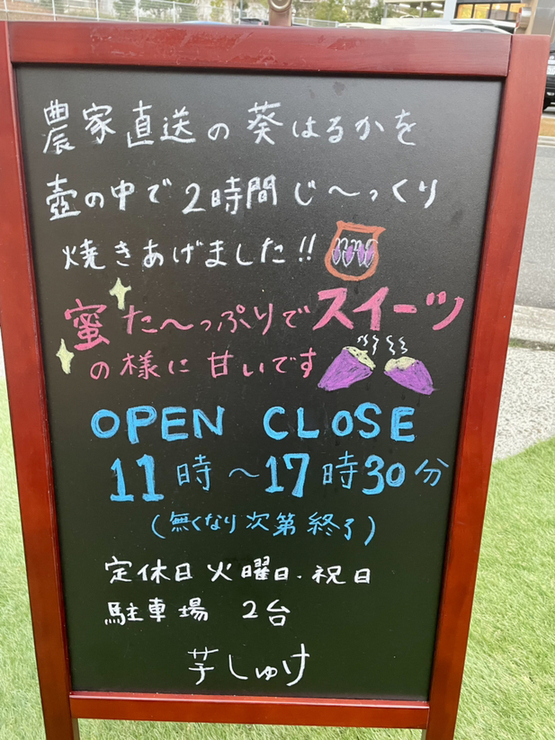 農家直送の葵はるかを
壺の中で2時間じ〜っくり
焼きあげました!!
蜜た〜っぷりでスイーツ
の様に甘いです
OPEN CLOSE
11時〜17時30分
(無くなり次第終了)
定休日 火曜日・祝日
駐車場 2台
芋しゅけ